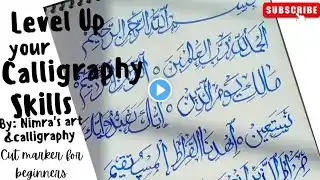 Level Up
your
Calligraphy
Skills
By: Nimra's art
&calligraphy
Cut marker for
beginners
SUBSCRIBE
بسم الله الرحمن الرحيم
الحمد لله رب العلمين ○ الرحمن الرحيم
مالك يوم الدين ○ إياك نعبد وإياك
نستعين ○ اهدنا الصراط المستقيم
صراط الذين